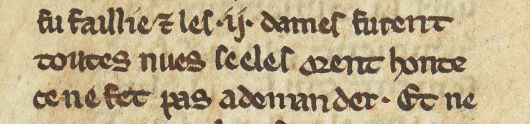 fu faillie ⁊ les ·ij· dames furent
toutes nues se eles orent honte
ce ne fet pas ademander · Et ne